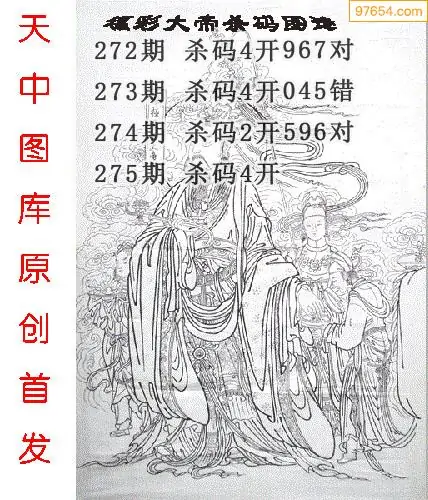 97654.com
福彩大帝杀码图谜
272期 杀码4开967对
273期 杀码4开045错
274期 杀码2开596对
275期 杀码4开
天中图库原创首发